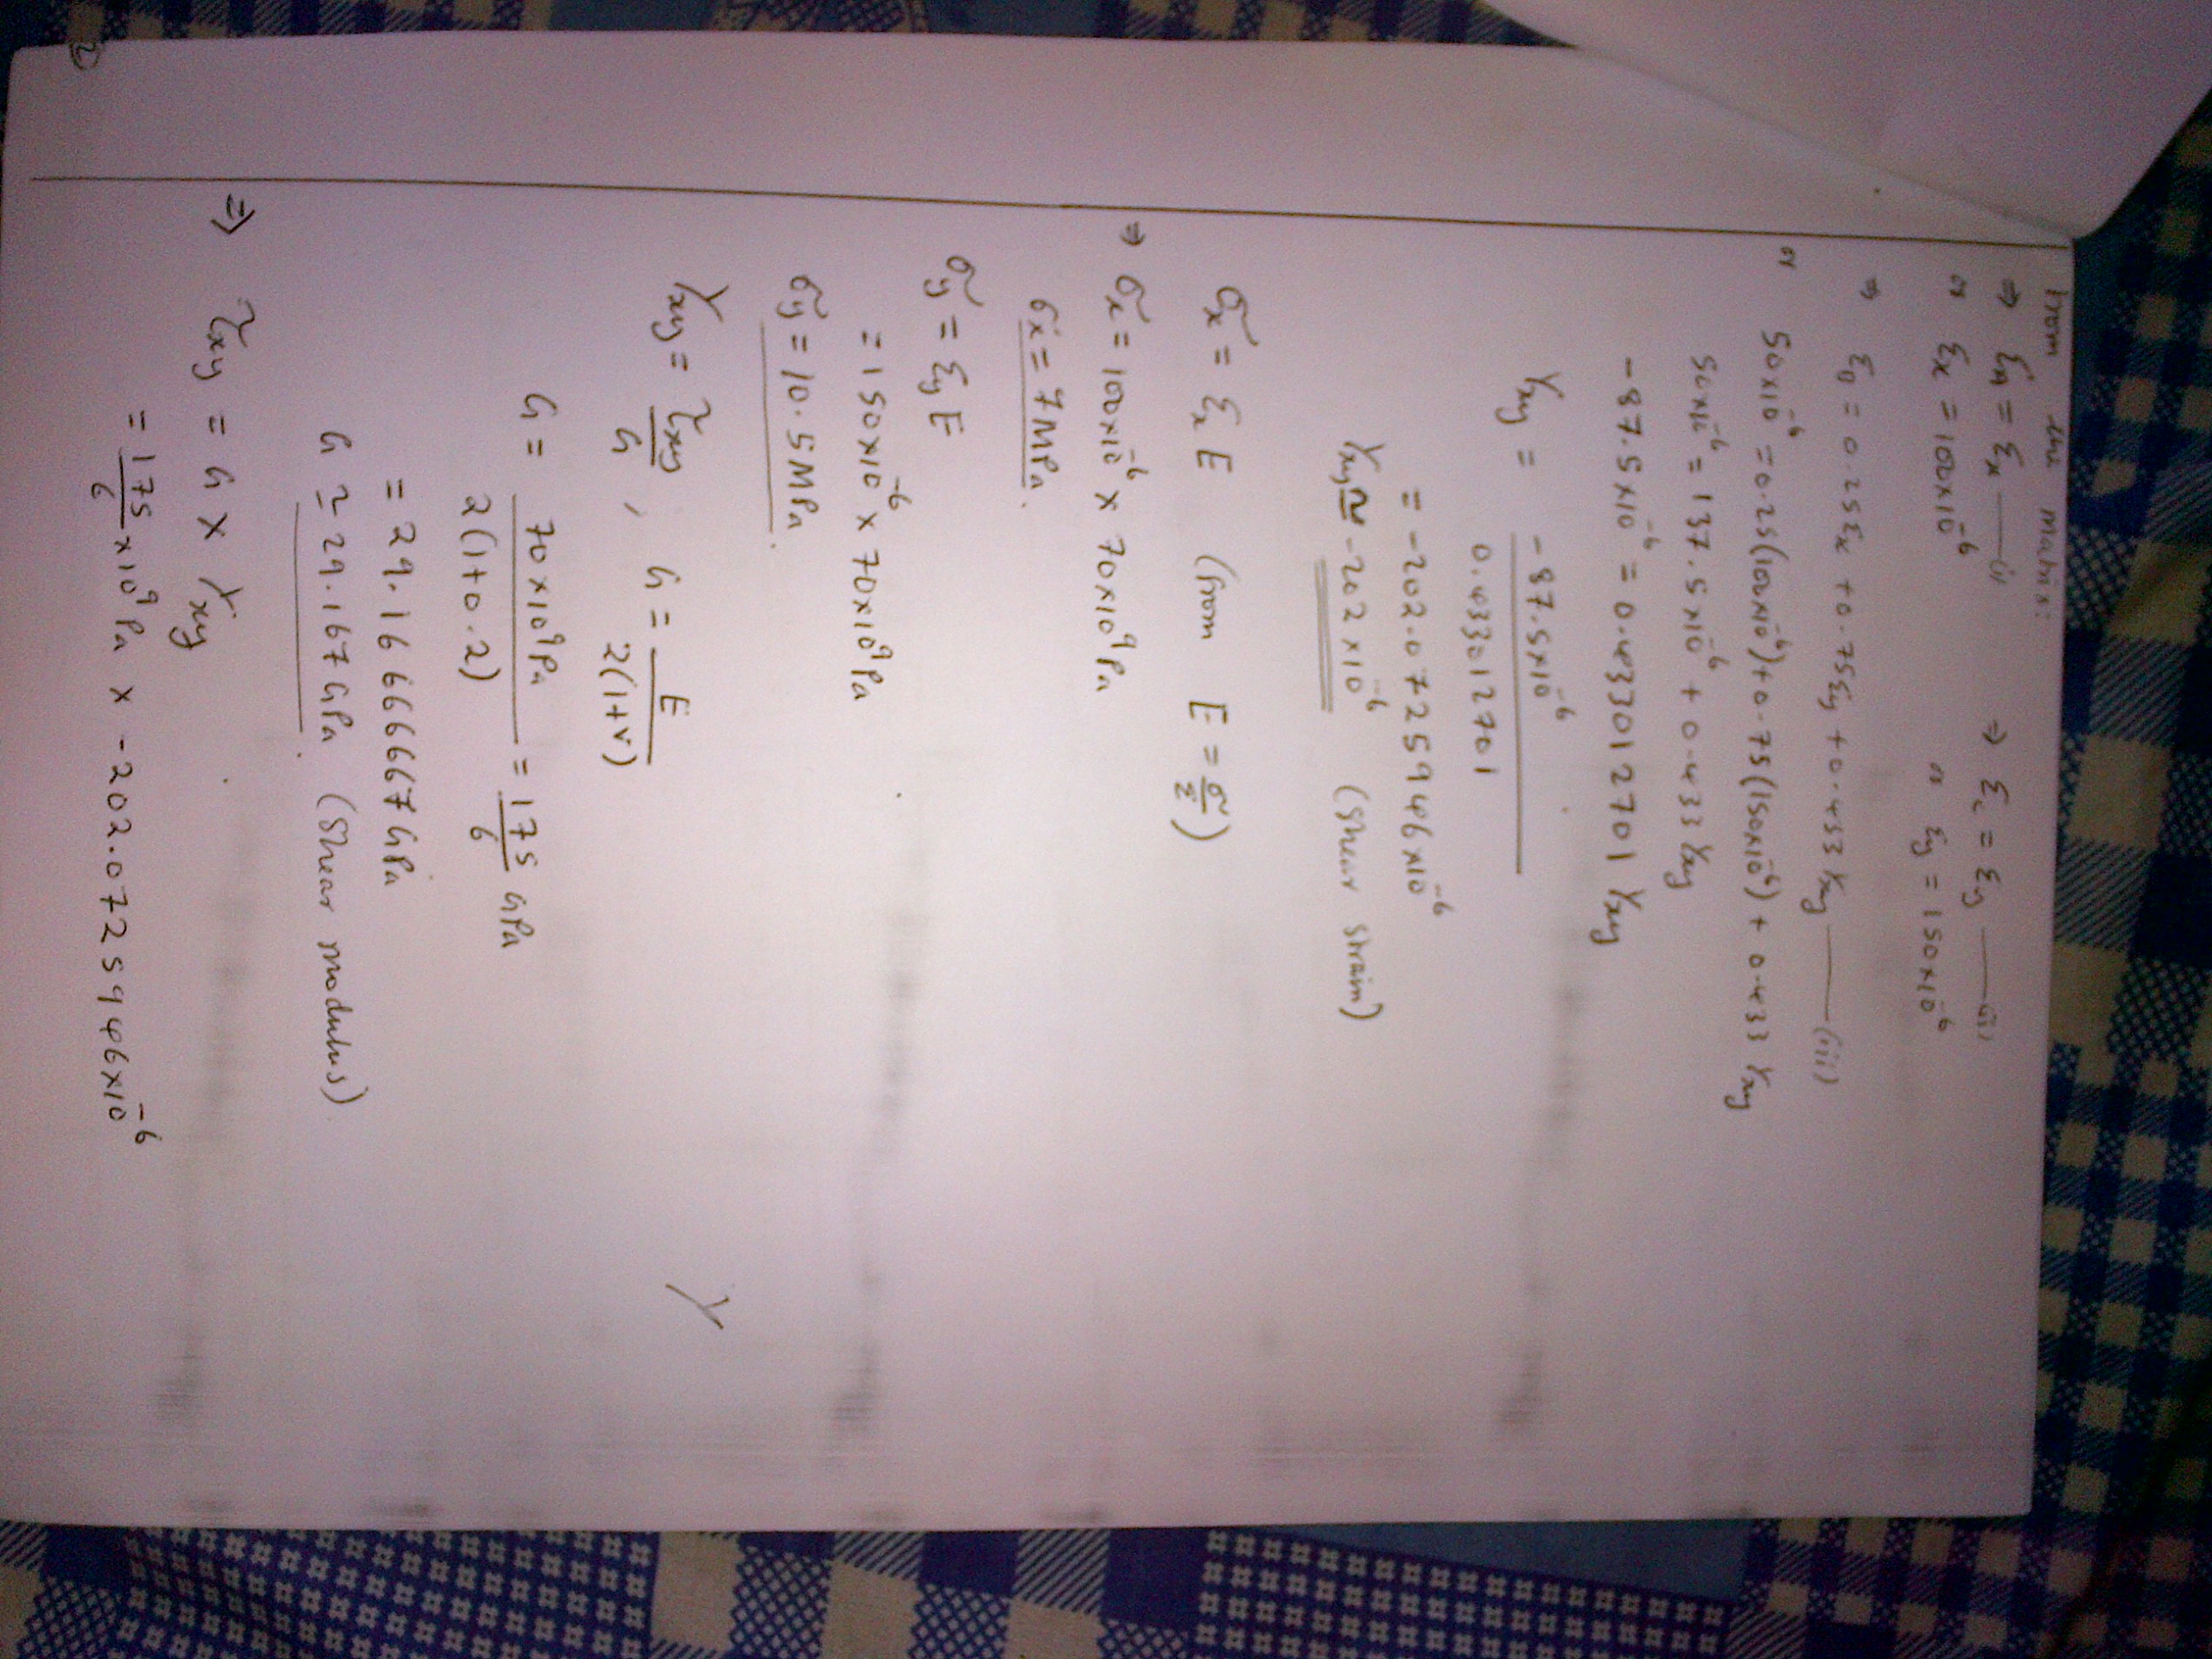 From the matrix:
⇒ εa = εx ——(i) ⇒ εc = εy ——(ii)
or εx = 100×10⁻⁶ or εy = 150×10⁻⁶
⇒ εB = 0.25εx + 0.75εy + 0.433 γxy ——(iii)
or 50×10⁻⁶ = 0.25(100×10⁻⁶) + 0.75(150×10⁻⁶) + 0.433 γxy
50×10⁻⁶ = 137.5×10⁻⁶ + 0.433 γxy
-87.5×10⁻⁶ = 0.433012701 γxy
γxy = -87.5×10⁻⁶ / 0.433012701
= -202.0725946×10⁻⁶
γxy ≃ -202×10⁻⁶ (shear strain)
σx = εx E (from E = σ/ε)
⇒ σx = 100×10⁻⁶ × 70×10⁹Pa
σx = 7MPa.
σy = εy E
= 150×10⁻⁶ × 70×10⁹Pa
σy = 10.5MPa.
γxy = τxy/G , G = E/2(1+ν)
G = 70×10⁹Pa / 2(1+0.2) = 175/6 GPa
= 29.16666667GPa
G ≃ 29.167GPa (Shear modulus)
⇒ τxy = G × γxy
= 175/6 ×10⁹Pa × -202.0725946×10⁻⁶
2